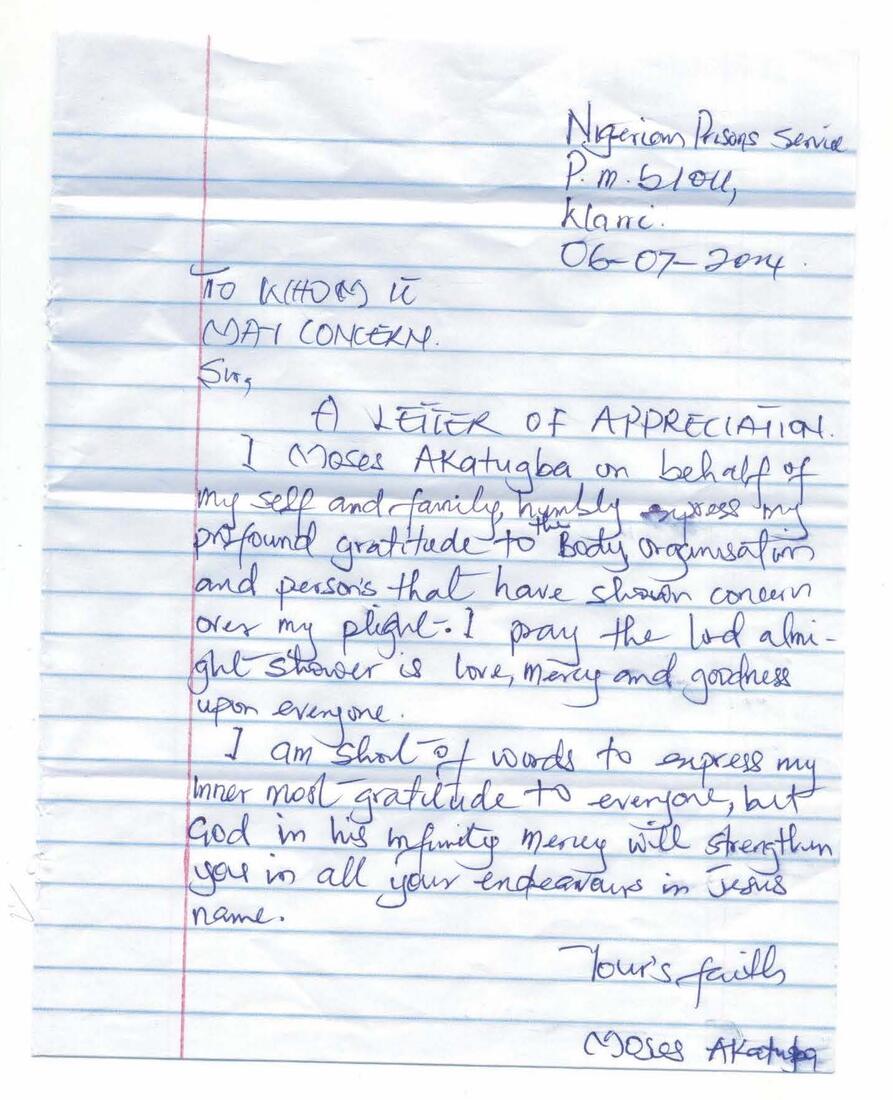 Nigerian Prisons Service
P.M.
06-07-2014.
TO WHOM IT
MAY CONCERN.
Sir,
A LETTER OF APPRECIATION.
I Moses Akatugba on behalf of
my self and family, humbly express my
profound gratitude to the Body organisation
and person's that have shown concern
over my plight. I pray the lord almi-
ght shower is love, mercy and goodness
upon everyone.
I am short of words to express my
inner most gratitude to everyone, but
God in his infinity mercy will strengthen
you in all your endeavours in Jesus
name.
Your's faith
Moses Akatugba